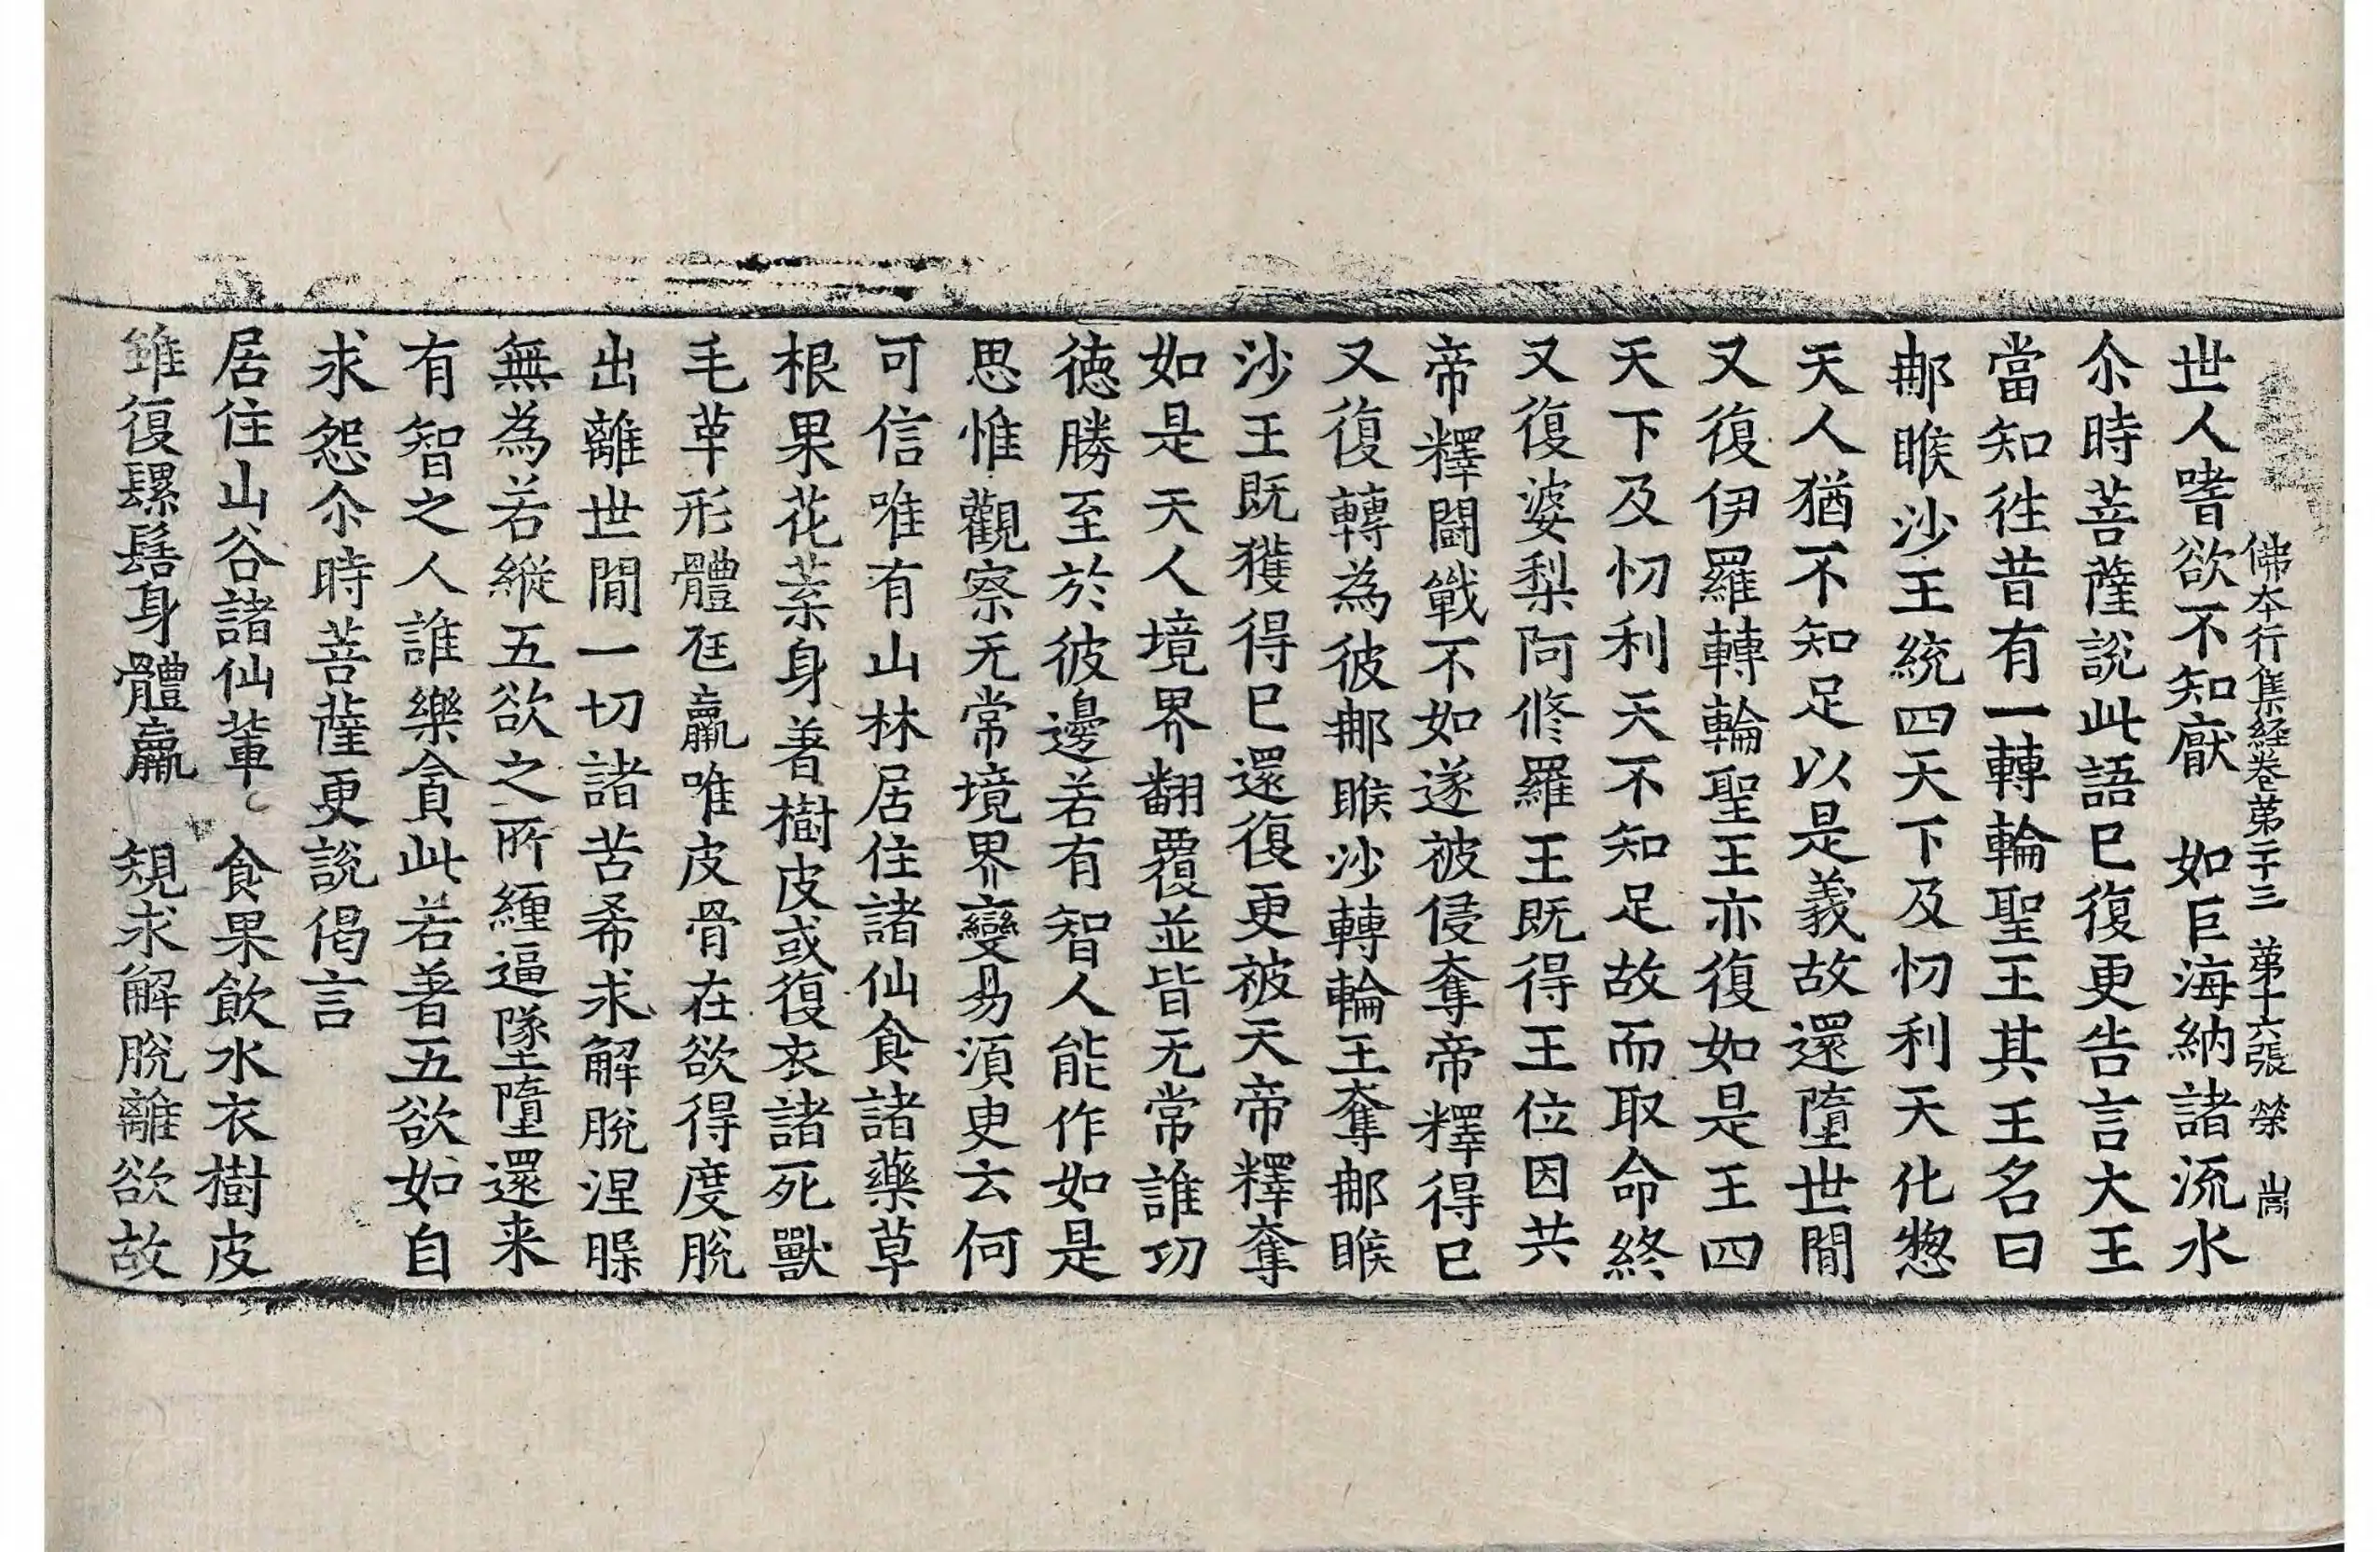 佛本行集経卷第二十三 第十六張 禜 崗
世人嗜欲不知猒 如巨海納諸流水
尒時菩薩說此語已復更告言大王
當知徃昔有一轉輪聖王其王名曰
㖠睺沙王統四天下及忉利天化惣
天人猶不知足以是義故還墮世閒
又復伊羅轉輪聖王亦復如是王四
天下及忉利天不知足故而取命終
又復婆梨阿修羅王既得王位因共
帝釋鬪戰不如遂被侵奪帝釋得已
又復轉為彼㖠睺沙轉輪王奪㖠睺
沙王既獲得已還復更被天帝釋奪
如是天人境界翻覆並皆无常誰功
徳勝至於彼邊若有智人能作如是
思惟觀察无常境界變易須臾云何
可信唯有山林居住諸仙食諸藥草
根果花葉身著樹皮或復衣諸死獸
毛革形體尫羸唯皮骨在欲得度脫
出離世間一切諸苦希求解脫涅槃
無為若縱五欲之所纏逼墜墮還来
有智之人誰樂貪此若著五欲如自
求怨尒時菩薩更說偈言
居住山谷諸仙輩 食果飲水衣樹皮
雖復騾髻身體羸 規求解脫離欲故